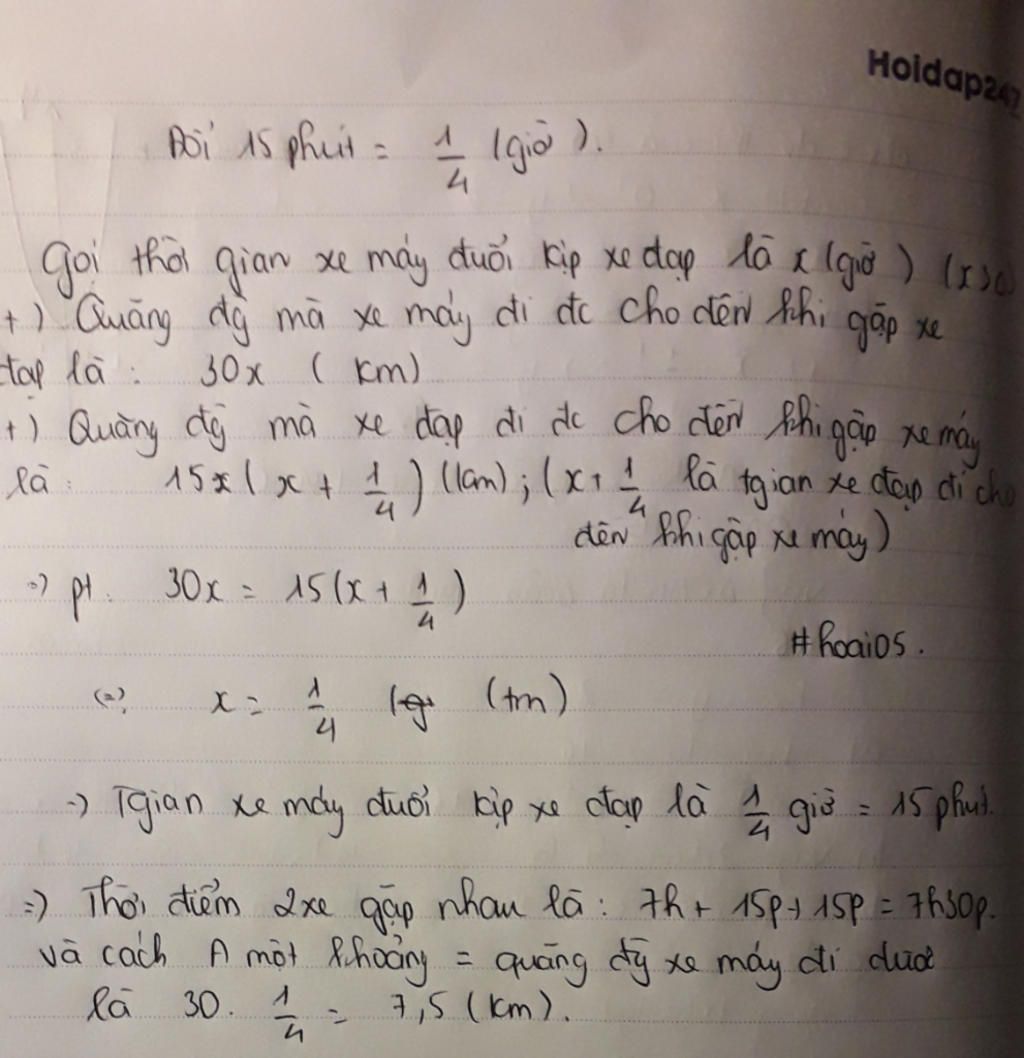 Hoidap247
Đổi 15 phút = 1/4 (giờ).
Gọi thời gian xe máy đuổi kịp xe đạp là x (giờ) (x>0)
+) Quãng đg mà xe máy đi đc cho đến khi gặp xe
đạp là: 30x (km)
+) Quãng đg mà xe đạp đi đc cho đến khi gặp xe máy
là: 15x(x + 1/4) (km); (x+ 1/4 là tgian xe đạp đi cho
đến khi gặp xe máy)
=> pt. 30x = 15(x + 1/4)
#hoai05.
<=> x = 1/4 (tm)
-) Tgian xe máy đuổi kịp xe đạp là 1/4 giờ = 15 phút.
=) Thời điểm 2xe gặp nhau là: 7h + 15p + 15p = 7h30p.
và cách A một khoảng = quãng đg xe máy đi được
là 30. 1/4 = 7,5 (km).